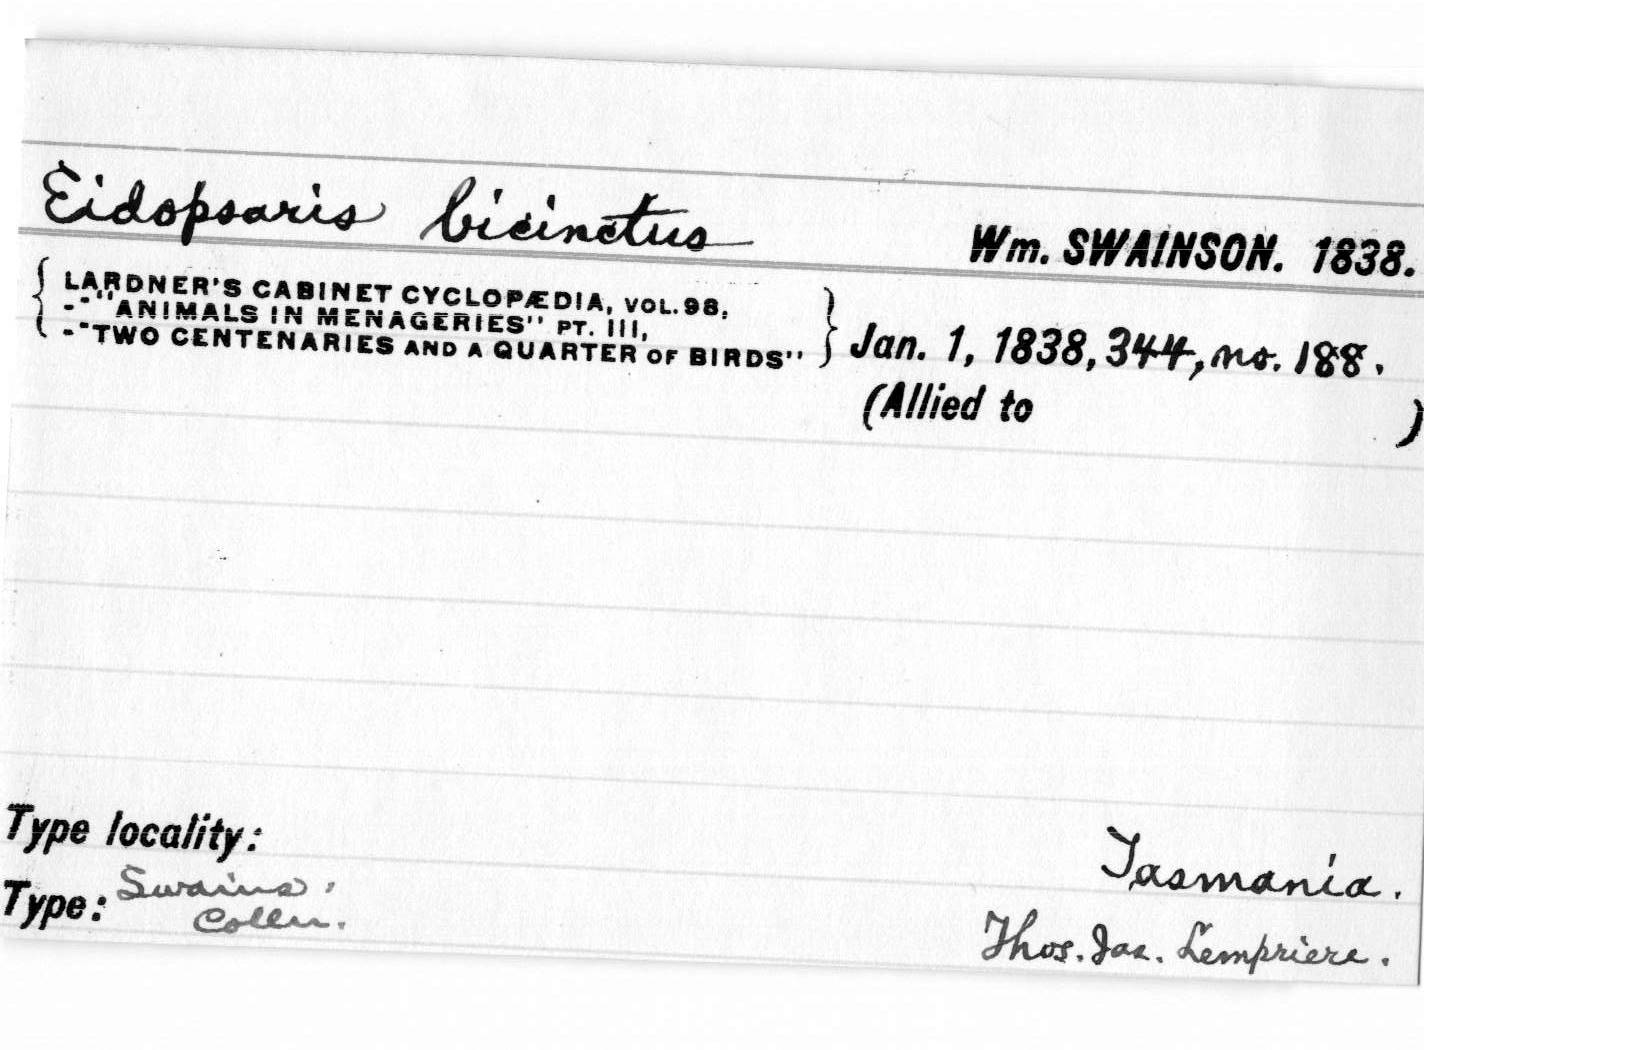 Eidopsaris bicinctus
Wm. SWAINSON. 1838.
LARDNER'S CABINET CYCLOPÆDIA, VOL. 98,
--"ANIMALS IN MENAGERIES" PT. III,
--"TWO CENTENARIES AND A QUARTER OF BIRDS"
Jan. 1, 1838, 344, no. 188.
(Allied to )
Type locality:
Tasmania.
Type: Swains.
Colln.
Thos. Jas. Lempriere.